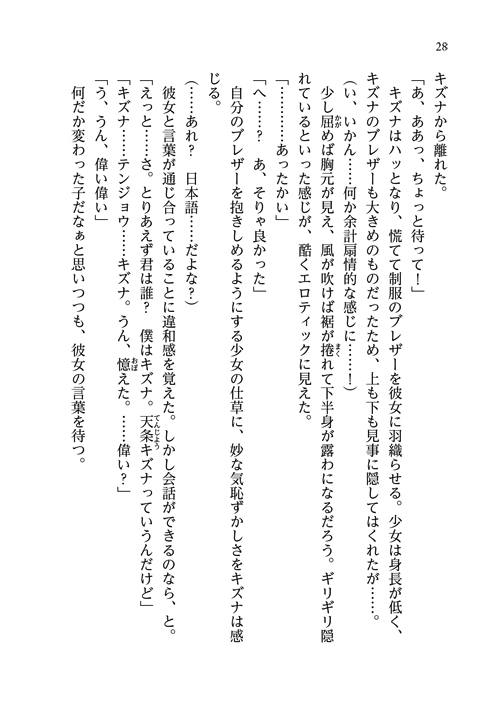 28
キズナから離れた。
「あ、ああっ、ちょっと待って！」
　キズナはハッとなり、慌てて制服のブレザーを彼女に羽織らせる。少女は身長が低く、
キズナのブレザーも大きめのものだったため、上も下も見事に隠してはくれたが……。
（い、いかん……何か余計扇情的な感じに……！）
　少し屈めば胸元が見え、風が吹けば裾が捲れて下半身が露わになるだろう。ギリギリ隠
れているといった感じが、酷くエロティックに見えた。
「…………あったかい」
「へ……？　あ、そりゃ良かった」
　自分のブレザーを抱きしめるようにする少女の仕草に、妙な気恥ずかしさをキズナは感
じる。
（……あれ？　日本語……だよな？）
　彼女と言葉が通じ合っていることに違和感を覚えた。しかし会話ができるのなら、と。
「えっと……さ。とりあえず君は誰？　僕はキズナ。天条キズナっていうんだけど」
「キズナ……テンジョウ……キズナ。うん、憶えた。……偉い？」
「う、うん、偉い偉い」
　何だか変わった子だなぁと思いつつも、彼女の言葉を待つ。